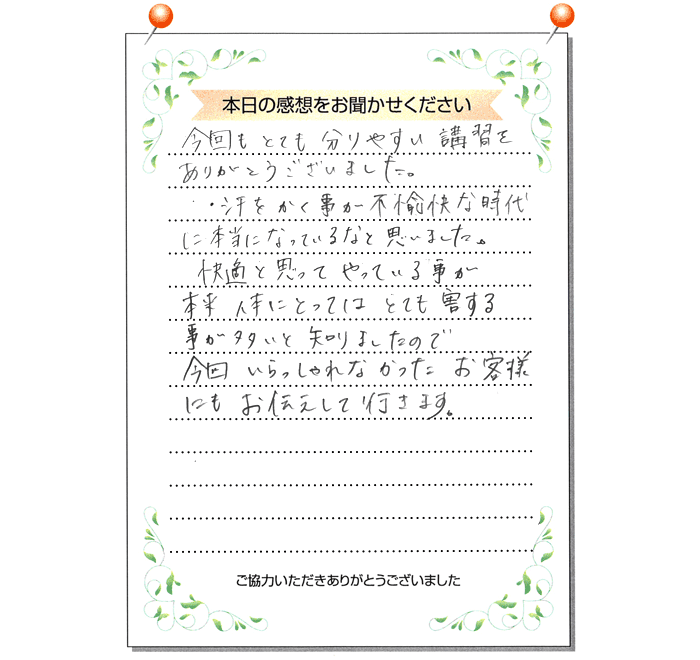 本日の感想をお聞かせください
今回も とても 分りやすい 講習を
ありがとうございました。
・汗を かく事が不愉快な時代
に本当になっているなと思いました。
快適と思って やっている事が
本来 人体にとっては とても 害する
事が多いと 知りましたので
今回 いらっしゃれなかった お客様
にも お伝えして行きます。
ご協力いただきありがとうございました